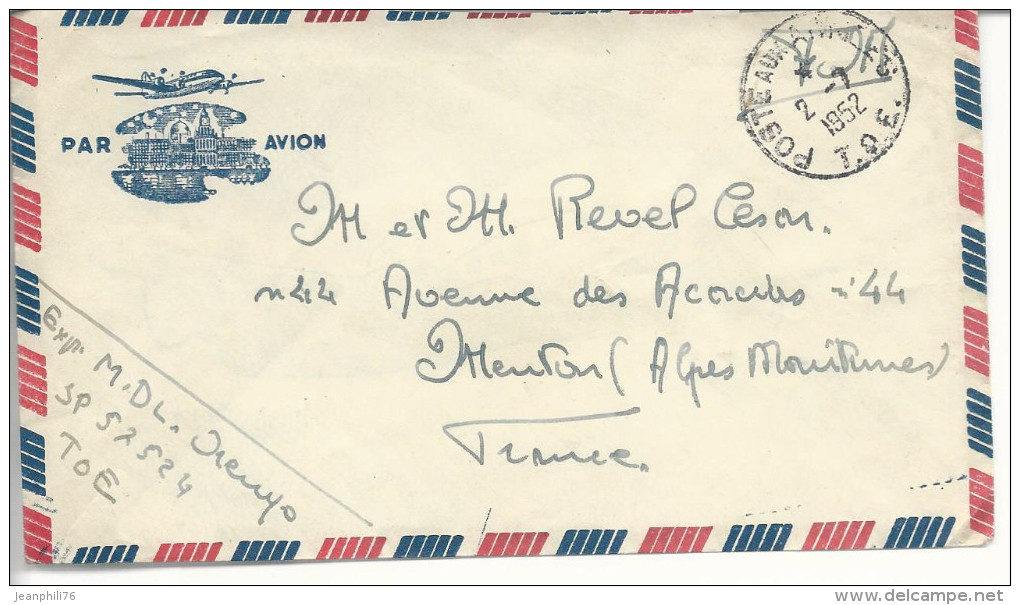 PAR AVION
POSTE AUX ARMEES
2 - 7
1952
T.O.E.
M et M. Revel Cesar.
n 44 Avenue des Acacias n° 44
Menton (Alpes Maritimes)
France.
Exp. M.D.L.
SP 57524
TOE
jeanphili76